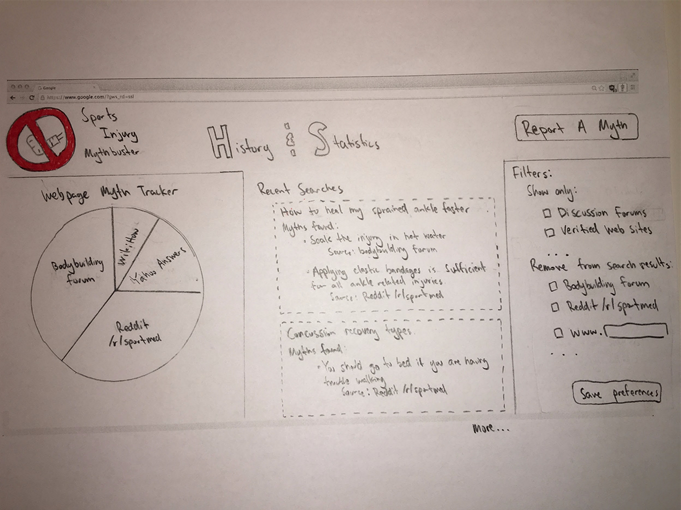 Google
https://www.google.com/?gws_rd=ssl
Sports
Injury
Mythbuster
History & Statistics
Report A Myth
Webpage Myth Tracker
Bodybuilding
forum
WikiHow
Yahoo Answers
Reddit
/r/sportmed
Recent Searches
How to heal my sprained ankle faster
Myths found:
• Soak the injury in hot water
Source: bodybuilding forum
• Applying elastic bandages is sufficient
for all ankle related injuries
Source: Reddit /r/sportmed
Concussion recovery types
Myths found:
• You should go to bed if you are having
trouble walking
Source: Reddit /r/sportmed
more...
Filters:
Show only:
Discussion Forums
Verified Web Sites
....
Remove from search results:
Bodybuilding Forum
Reddit /r/sportmed
www.
...
Save preferences